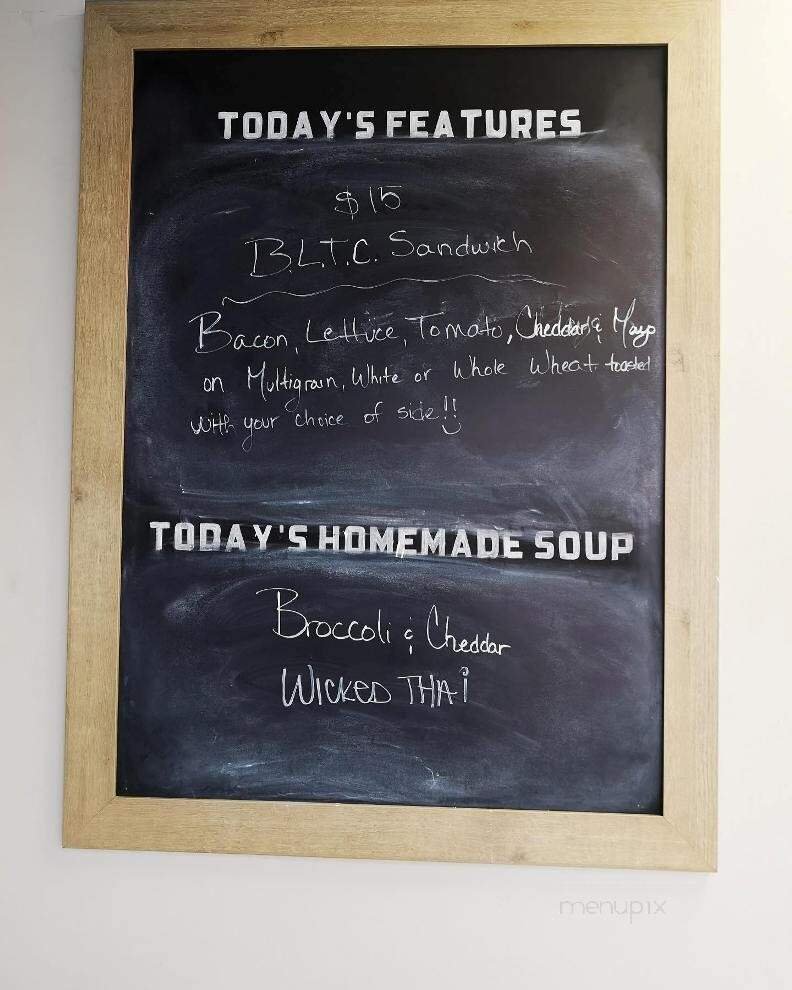 TODAY'S FEATURES
$15
B.L.T.C. Sandwich
Bacon, Lettuce, Tomato, Cheddar & Mayo
on Multigrain, White or Whole Wheat toasted
with your choice of side!!
TODAY'S HOMEMADE SOUP
Broccoli & Cheddar
WICKED THAi
menupix